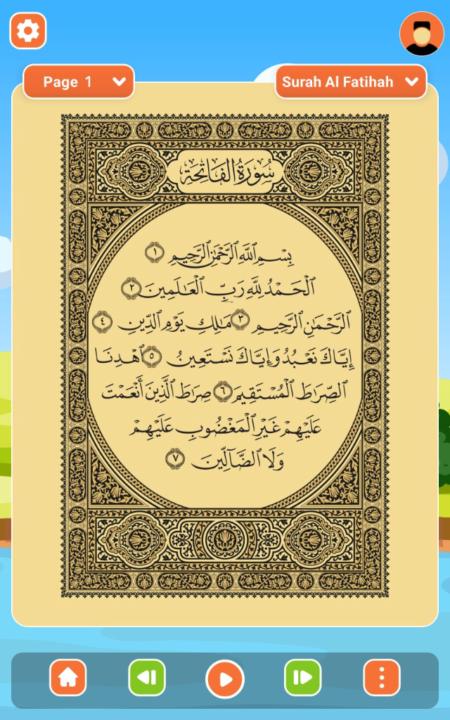 Page 1
Surah Al Fatihah
سُورَةُ الْفَاتِحَةِ
بِسْمِ اللَّهِ الرَّحْمَٰنِ الرَّحِيمِ ١
الْحَمْدُ لِلَّهِ رَبِّ الْعَالَمِينَ ٢
الرَّحْمَٰنِ الرَّحِيمِ ٣ مَالِكِ يَوْمِ الدِّينِ ٤
إِيَّاكَ نَعْبُدُ وَإِيَّاكَ نَسْتَعِينُ ٥ اهْدِنَا
الصِّرَاطَ الْمُسْتَقِيمَ ٦ صِرَاطَ الَّذِينَ أَنْعَمْتَ
عَلَيْهِمْ غَيْرِ الْمَغْضُوبِ عَلَيْهِمْ
وَلَا الضَّالِّينَ ٧